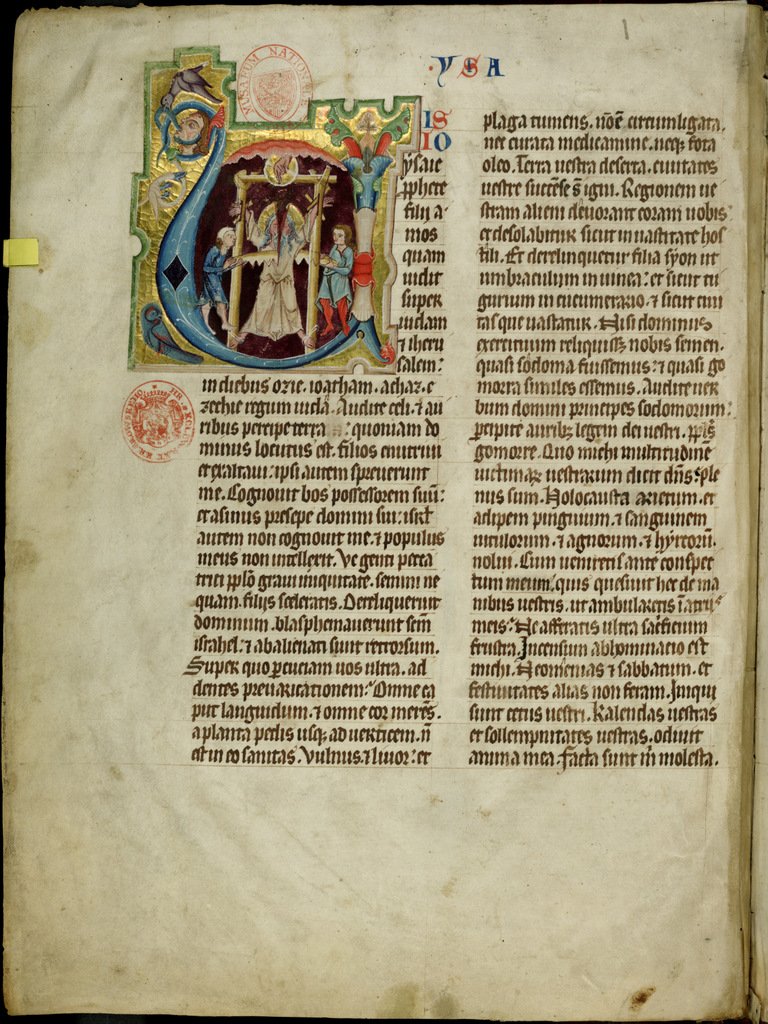 · YSA
IS
IO
ysaie
pphete
filii a
mos
quam
uidit
super
iudam
⁊ iheru
salem:
in diebus ozie. ioatham. achaz. e
zechie regum iuda. Audite celi. ⁊ au
ribus percipe terra : quoniam do
minus locutus est. filios enutriui
et exaltaui: ipsi autem spreuerunt
me. Cognouit bos possessorem suū:
et asinus presepe domini sui: isrl
autem non cognouit me. ⁊ populus
meus non intellexit. Ve genti pecca
trici pplo graui iniquitate. semini ne
quam. filijs sceleratis. Dereliquerunt
dominum. blasphemauerunt scm̄
israhel: ⁊ abalienati sunt retrorsum.
Super quo pcuciam uos ultra. ad
dentes preuaricationem: Omne ca
put languidum. ⁊ omne cor merens.
a planta pedis usq; ad uerticem. n̄
est in eo sanitas. Vulnus. ⁊ liuor: et
plaga tumens. nō ē circumligata.
nec curata medicamine. neq; fota
oleo. Terra uestra deserta. ciuitates
uestre succēse s̄ igni. Regionem ue
stram alieni deuorant coram uobis
et desolabitur sicut in uastitate hos
tili. Et derelinquetur filia syon ut
umbraculum in uinea: et sicut tu
gurium in cucumerario. ⁊ sicut ciui
tas que uastatur. Nisi dominus
exercituum reliquiss; nobis semen.
quasi sodoma fuissemus: ⁊ quasi go
morra similes essemus. Audite uer
bum domini principes sodomorum:
pcipite aurib; legem dei uestri. ppls̄
gomorre. Quo michi multitudinē
uictimar uestrarum dicit dn̄s: ple
nus sum. Holocausta arietum. et
adipem pinguium. ⁊ sanguinem
uitulorum. ⁊ agnorum. ⁊ hyrcorū.
nolui. Cum ueniretis ante conspec
tum meum: quis quesiuit hec de ma
nibus uestris. ut ambularetis ī atrijs
meis: Ne afferatis ultra sacficium
frustra. Incensum abhominacio est
michi. Neomenias ⁊ sabbatum. et
festiuitates alias non feram. Iniqui
sunt cetus uestri. Kalendas uestras
et sollempnitates uestras. odiuit
anima mea. Facta sunt m̄ molesta.